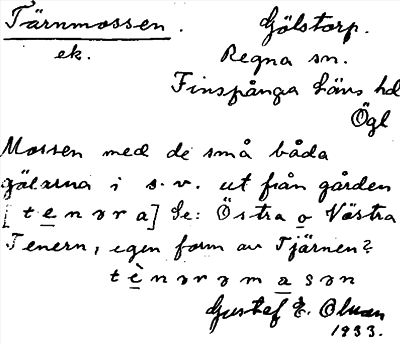 Tärnmossen. Gölstorp.
ek. Regna sn.
Finspånga läns hd
Ögl
Mossen med de små båda
gölarna i s.v. ut från gården
[tenəra] Se: Östra o Västra
Tenern, egen form av Tjärnen?
tènərəmasən
Gustaf E. Olsson
1933.